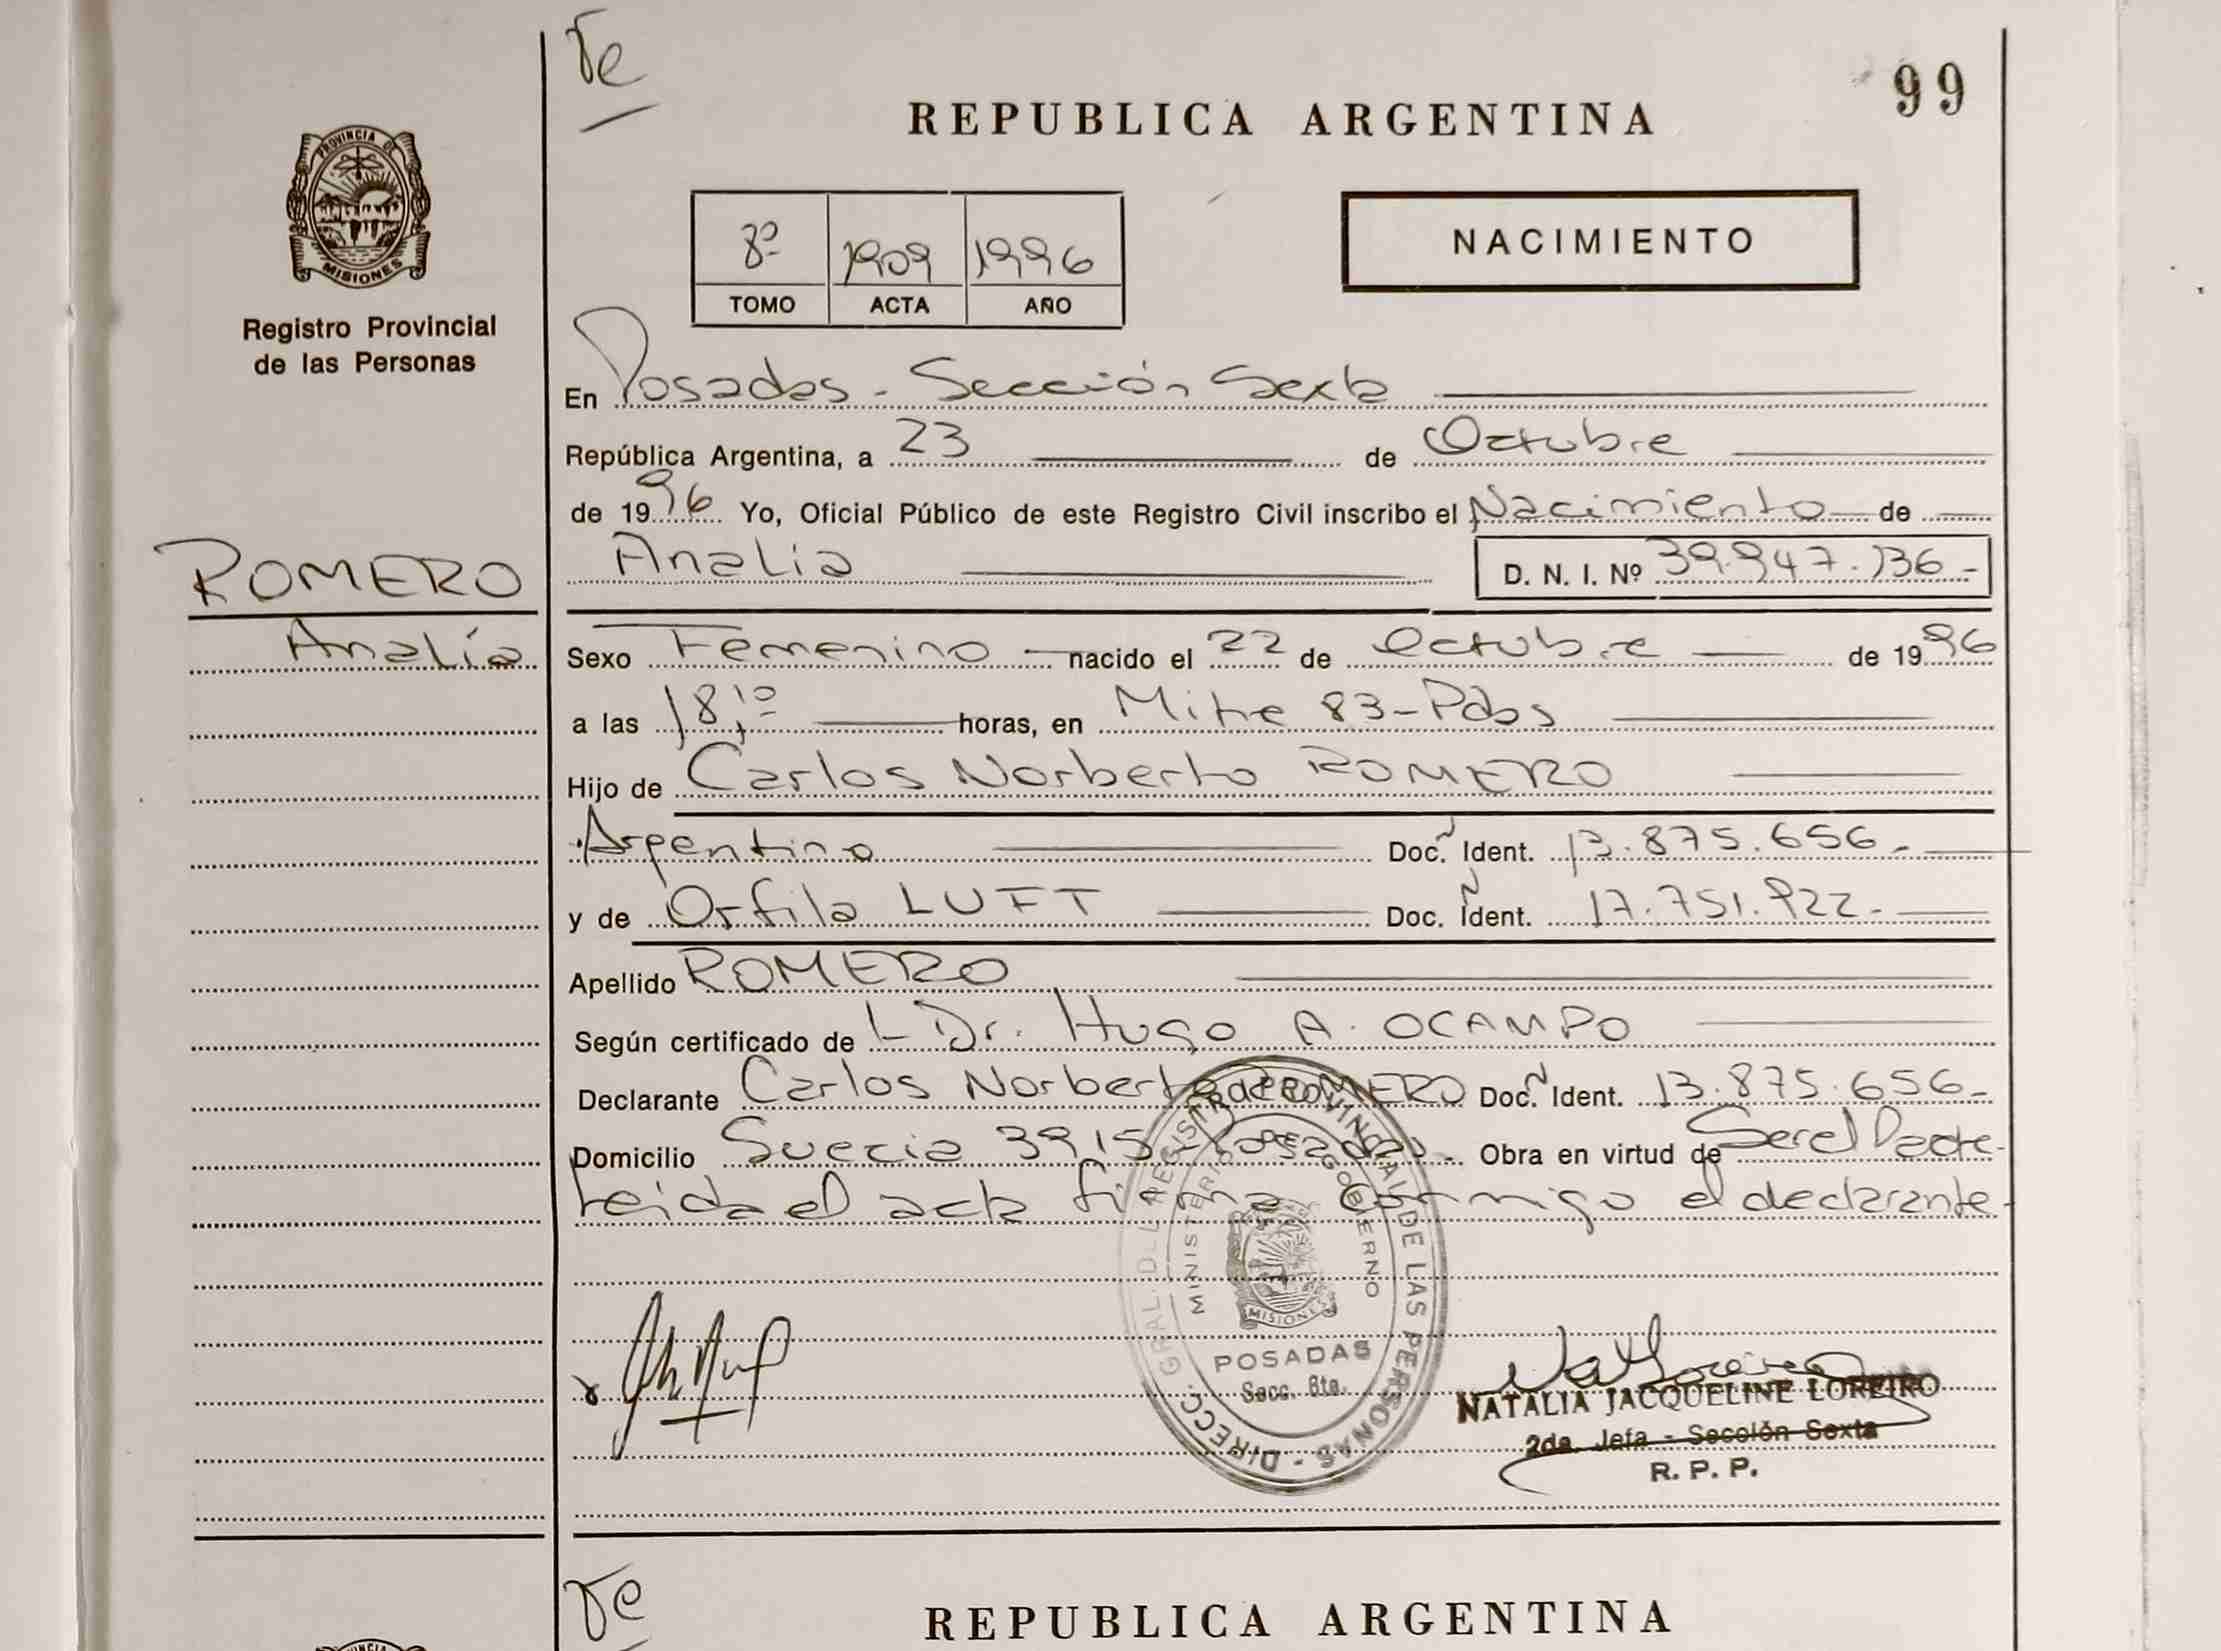 Te
99
REPUBLICA ARGENTINA
PROVINCIA DE
MISIONES
Registro Provincial
de las Personas
8º 1909 1996
TOMO ACTA AÑO
NACIMIENTO
En Posadas - Sección Sexta
República Argentina, a 23 de Octubre
de 1996 Yo, Oficial Público de este Registro Civil inscribo el Nacimiento de
Analia D. N. I. Nº 39.947.136-
ROMERO
Analía
Sexo Femenino nacido el 22 de Octubre de 1996
a las 18,10 horas, en Mitre 83-Pdas
Hijo de Carlos Norberto ROMERO
Argentino Doc. Ident. 13.875.656-
y de Orfila LUFT Doc. Ident. 17.751.922-
Apellido ROMERO
Según certificado de L Dr. Hugo A. OCAMPO
Declarante Carlos Norberto ROMERO Doc. Ident. 13.875.656-
Domicilio Suecia 3915 - Posadas - Obra en virtud de Ser el Padre-
Leida el acta firma conmigo el declarante-
DIRECC. GRAL. DEL REGISTRO PROVINCIAL DE LAS PERSONAS -
MINISTERIO DE GOBIERNO
MISIONES
POSADAS
Secc. 6ta.
NATALIA JACQUELINE LOREIRO
2da. Jefa - Sección Sexta
R. P. P.
Te
REPUBLICA ARGENTINA